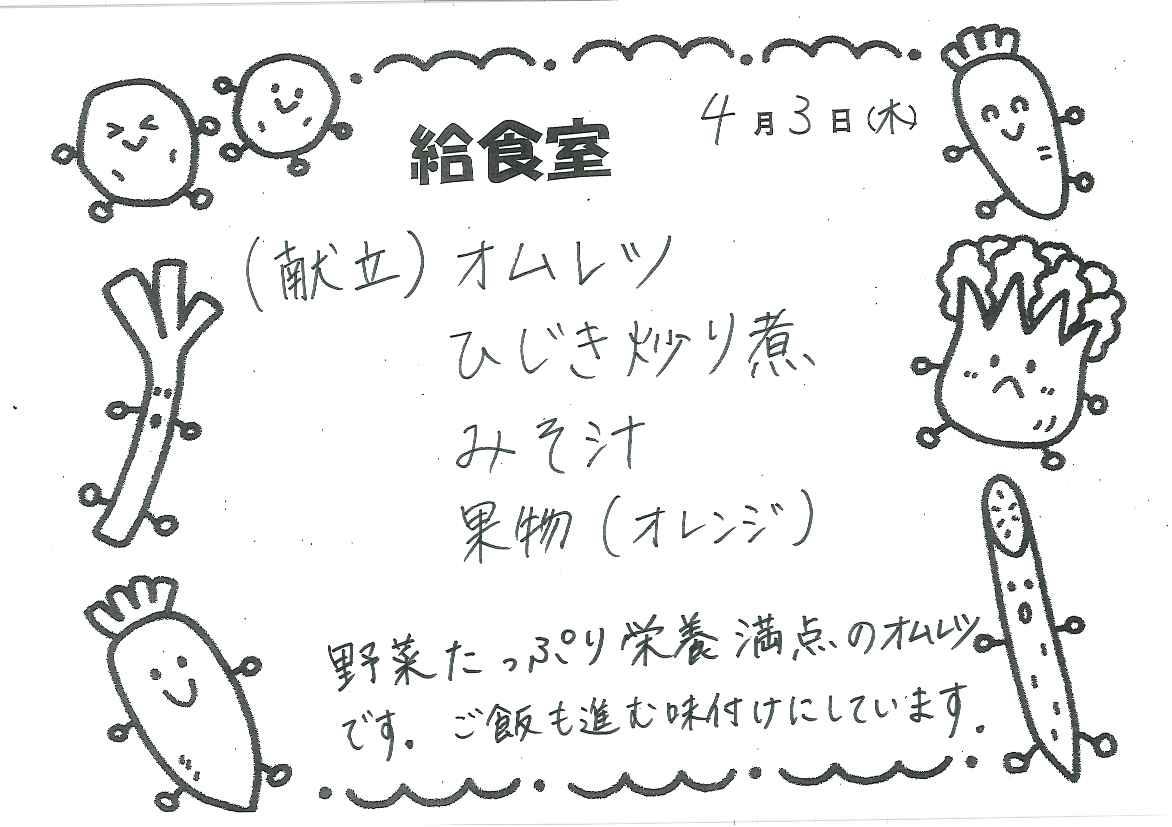 給食室
4月3日(木)
(献立)オムレツ
ひじき炒り煮
みそ汁
果物(オレンジ)
野菜たっぷり栄養満点のオムレツ
です。ご飯も進む味付けにしています。